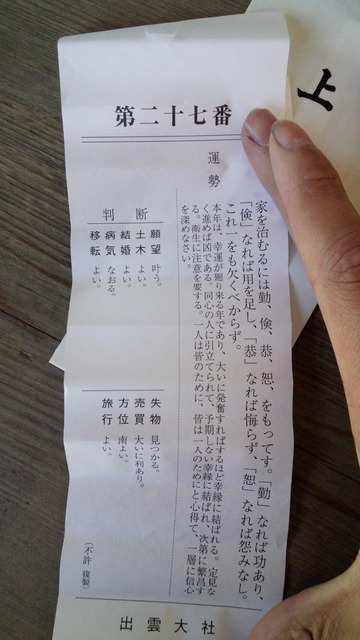 上
第二十七番
運勢
家を治むるには勤、倹、恭、恕、をもってす。「勤」なれば功あり、
「倹」なれば用を足し、「恭」なれば悔らず、「恕」なれば怨みなし。
これ一をも欠くべからず。
本年は、幸運が廻り来る年であり、大いに発奮すればするほど幸縁に結ばれる。定見な
く進めば凶である。同心の人に引立てられて、予期しない幸縁に結ばれ、次第に繁昌す
る。衛生に注意を要する。一人は皆のために、皆は一人のためにと心得て、一層に信心
を深めなさい。
判断
願望 叶う。
土木 よい。
結婚 よい。
病気 なおる。
移転 よい。
失物 見つかる。
売買 大いに利あり。
方位 南よい。
旅行 よい。
(不許 複製)
出雲大社